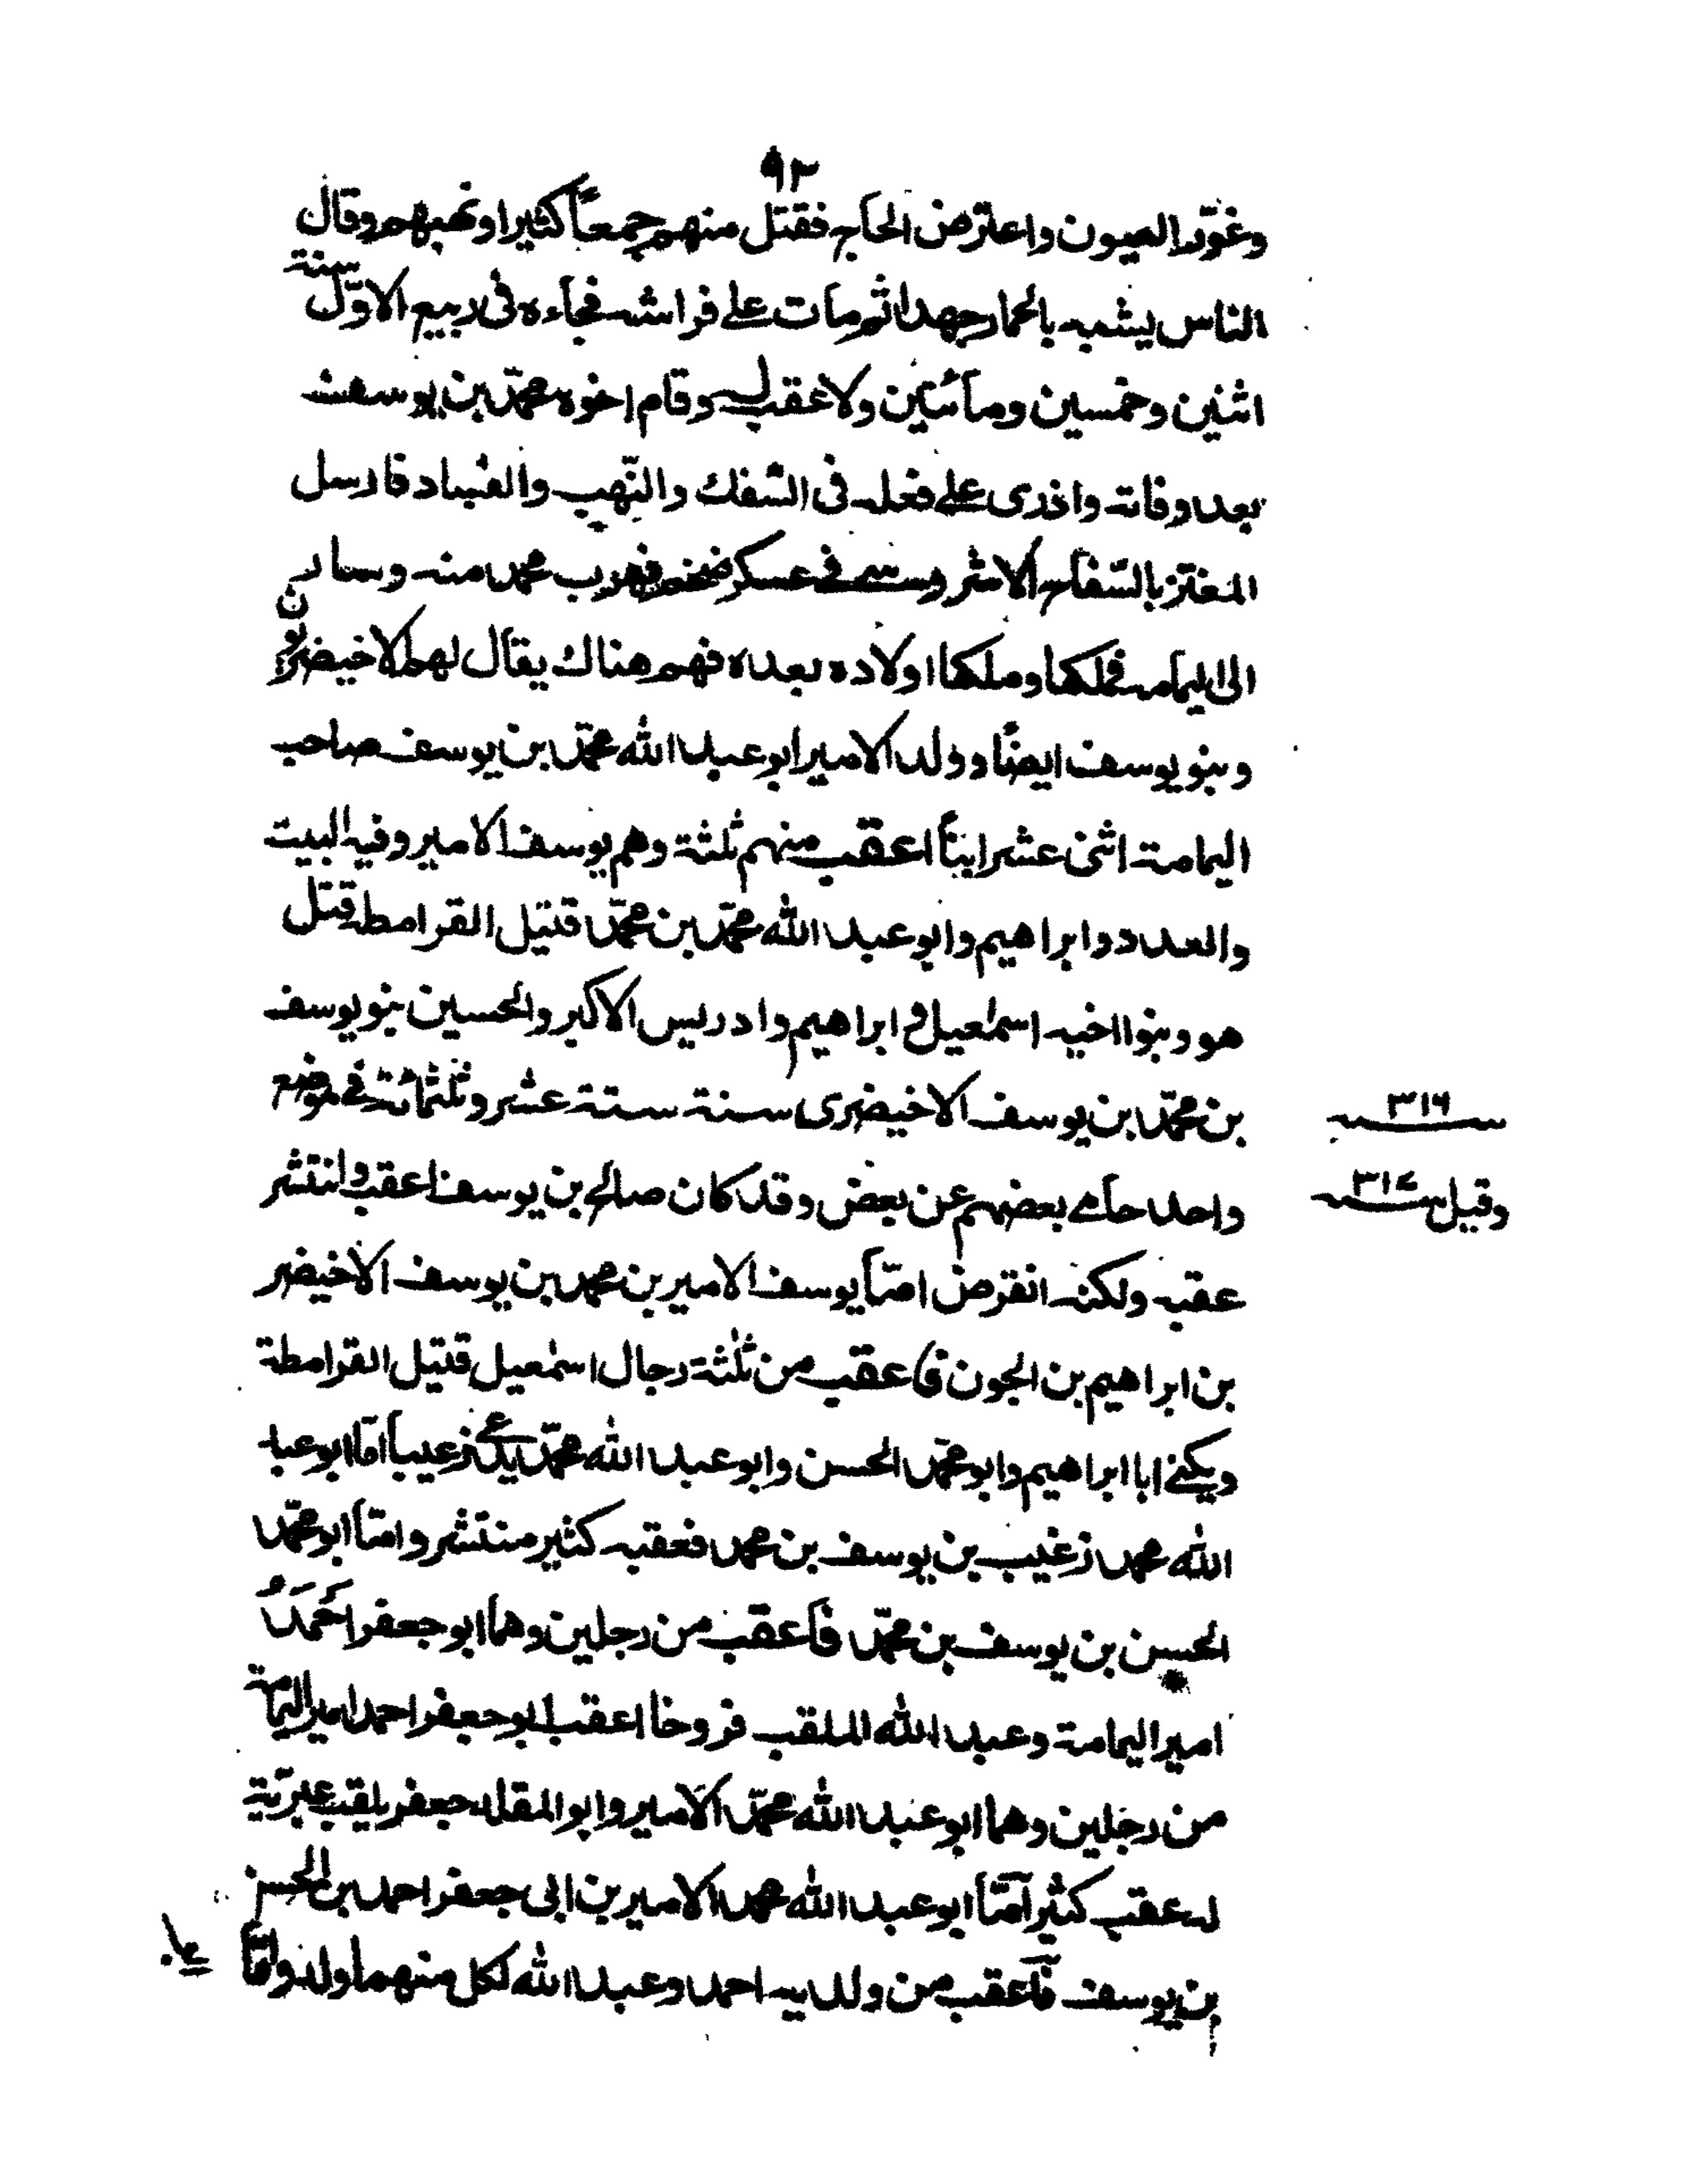 ٩٣
وغوّر العيون واعترض الحآج فقتل منهم جمعاً كثيرا ونهبهم وقال
الناس يشبه بالحمار جهدا ثم مات على فراشه فجاءه فى ربيع الاوّل سنة
اثنين وخمسين ومأئتين ولا عقب له وقام اخوه محمّد بن يوسف
بعد وفاته واذرى على فعله فى السّفك والنّهب والفساد فارسل
المعتز بالسّفاح الاشروسى فى عسكر ضخم فهرب محمد منه وسار
الى اليمامه فملكها وملكها اولاده بعده فهم هناك يقال لهم الاخيضريون
وبنو يوسف ايضًا وولد الامير ابو عبد الله محمّد بن يوسف صاحب
اليمامة اثنى عشر ابناً اعقب منهم ثلثة وهم يوسف الامير وفيه البيت
والعدد وابراهيم وابو عبد الله محمّد بن محمّد قتيل القرامطه قتل
هو وبنوا اخيه اسمٰعيل و ابراهيم وادريس الاكبر والحسين بنو يوسف
بن محمّد بن يوسف الاخيضرى سنة ستة عشر وثلثمائة فى موضع
سنه ٣١٦
واحد حآمى بعضهم عن بعض وقد كان صالح بن يوسف اعقب وانتشر
وقيل سنه ٣١٧
عقبه ولكنه انقرض امّا يوسف الامير بن محمد بن يوسف الاخيضر
بن ابراهيم بن الجون فاعقب من ثلٰثة رجال اسمٰعيل قتيل القرامطة
ويكنى ابا ابراهيم وابو محمّد الحسن وابو عبد الله محمّد يدعى زغيبا امّا ابو عبد
الله محمد زغيب بن يوسف بن محمد فعقبه كثير منتشر وامّا ابو محمّد
الحسن بن يوسف بن محمّد فاعقب من رجلين وهما ابو جعفر احمد
امير اليمامة وعبد الله الملقب فروخا اعقب ابو جعفر احمد امير اليمامة
من رجلين وهما ابو عبد الله محمّد الامير وابو المقلد جعفر يلقب عبرية
له عقب كثير امّا ابو عبد الله محمد الامير بن ابى جعفر احمد بن الحسن
بن يوسف فاعقب من ولديه احمد وعبد الله لكل منهما ولد وامّا